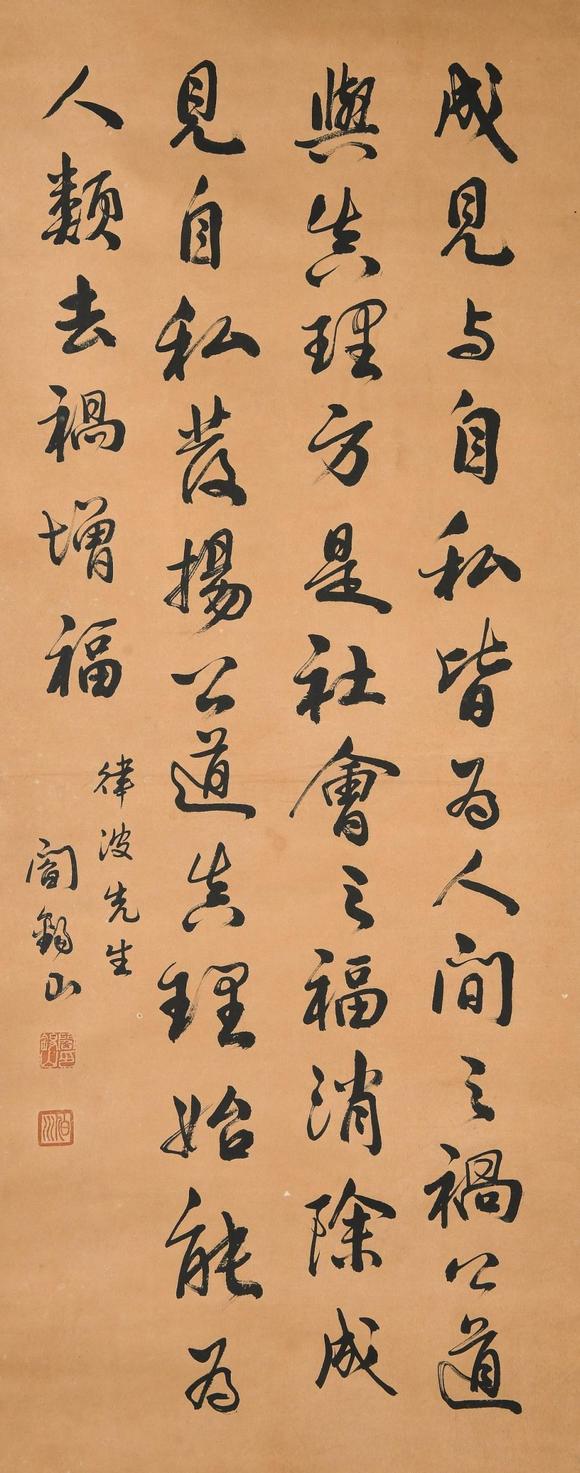 成見与自私皆为人間之禍公道
與真理方是社會之福消除成
見自私發揚公道真理始能为
人類去禍增福
律波先生
閻錫山
閻錫山
伯川